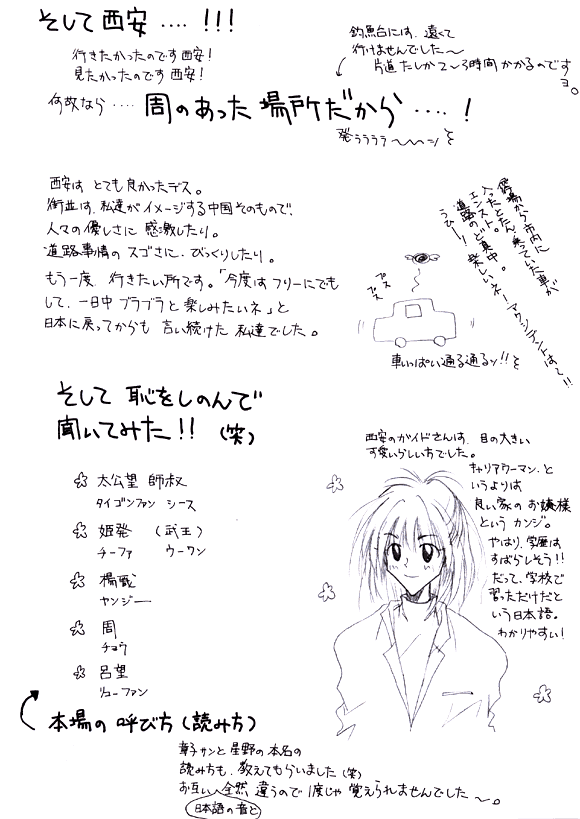 そして西安‥‥!!!
行きたかったのです西安!
見たかったのです西安!
何故なら‥‥周のあった場所だから‥‥!
釣魚台には、遠くて
行けませんでした〜
片道たしか2〜3時間かかるのです
ヨ。
発ララララ〜〜ンを
西安はとても良かったデス。
街並は、私達がイメージする中国そのもので、
人々の優しさに感激したり。
道路事情のスゴさに、びっくりしたり。
もう一度、行きたい所です。「今度はフリーにでも
して、一日中ブラブラと楽しみたいネ」と
日本に戻ってからも言い続けた私達でした。
から市内に
入ったとたん、乗っていた車が
エンスト。
道路のど真中。
楽しいネ!アクシデントは〜!!
うひーっ
プス
プス
車いっぱい通る通るッ!!を
そして恥をしのんで
聞いてみた!!(笑)
太公望 師叔
タイゴンファン シース
姫発 (武王)
チーファ ウーワン
楊戩
ヤンジー
周
チョウ
呂望
リューファン
本場の呼び方(読み方)
西安のガイドさんは、目の大きい
可愛いらしい方でした。
キャリアウーマン、と
いうよりは
良い家のお嬢様
というカンジ。
やはり、学歴は
すばらしそう!!
だって、学校で
習っただけだと
いう日本語。
わかりやすい!
章子サンと星野の本名の
読み方も、教えてもらいました(笑)
お互い全然違うので1度じゃ覚えられませんでした〜。
日本語の音と